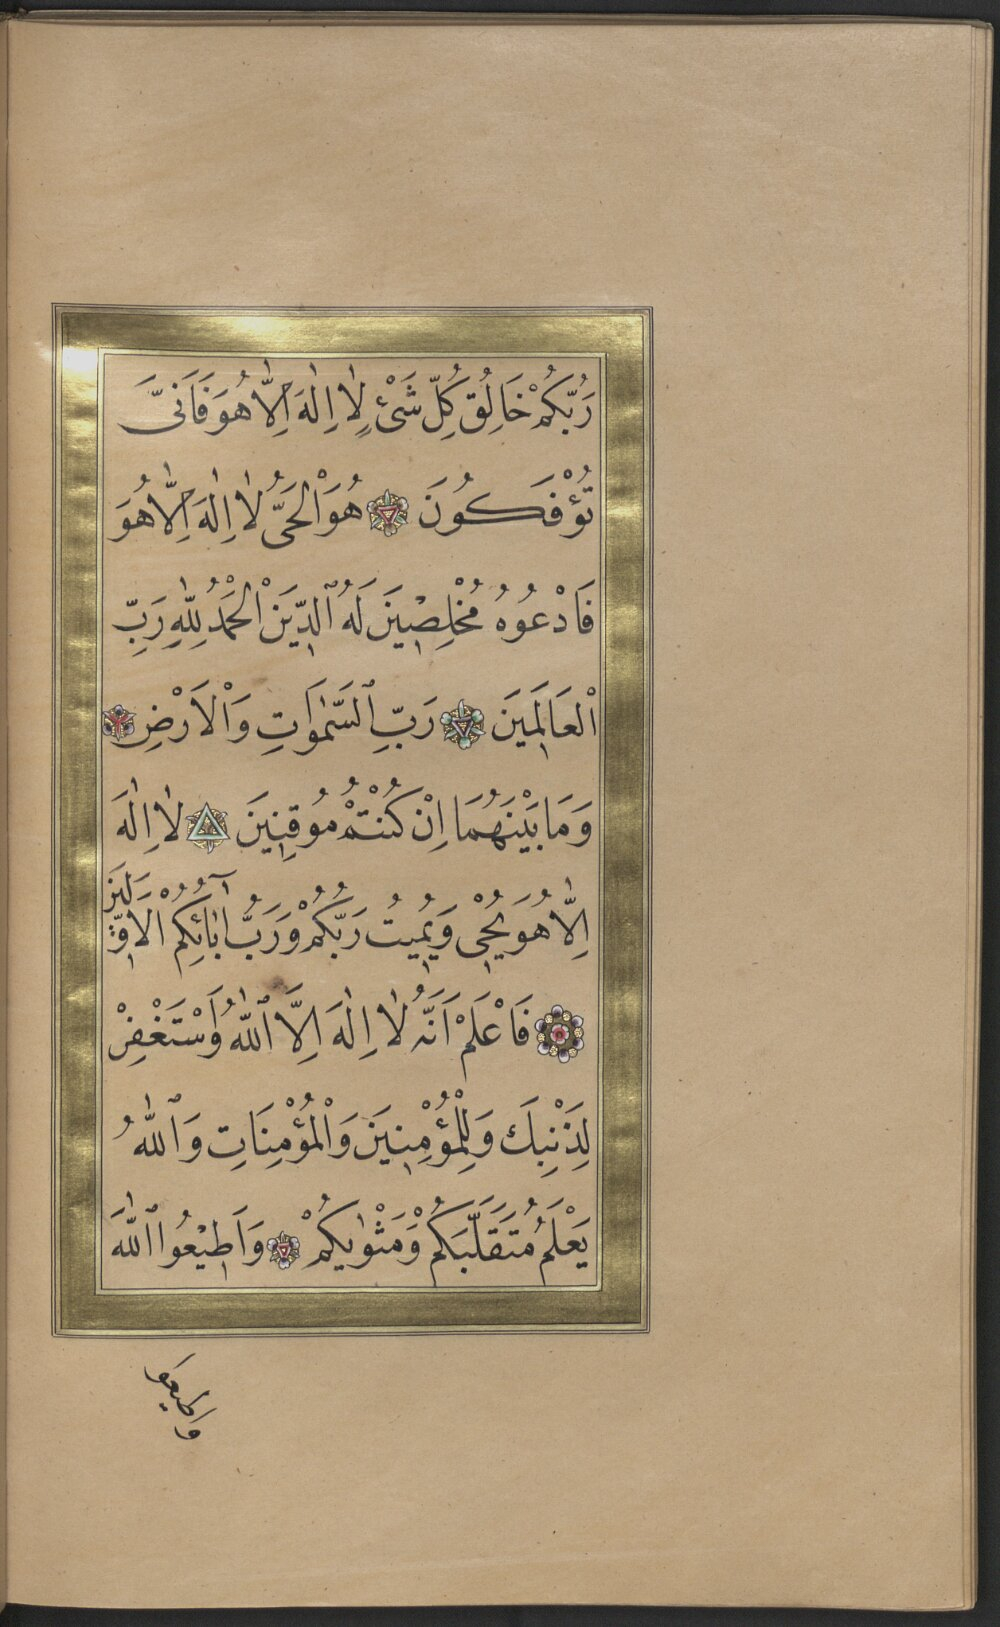 رَبُّكُمْ خَالِقُ كُلِّ شَيْءٍ لَا اِلٰهَ اِلَّا هُوَ فَاَنّٰى
تُؤْفَكُونَ هُوَ الْحَىُّ لَا اِلٰهَ اِلَّا هُوَ
فَادْعُوهُ مُخْلِصِينَ لَهُ ٱلدِّينَ اْلحَمْدُ لِلّٰهِ رَبِّ
اْلعَالَمِينَ رَبِّ ٱلسَّمٰوَاتِ وَاْلاَرْضِ
وَمَا بَيْنَهُمَا اِنْ كُنْتُمْ مُوقِنِينَ لَا اِلٰهَ
اِلَّا هُوَ يُحْيِى وَيُمِيتُ رَبُّكُمْ وَرَبُّ اٰبَآئِكُمُ اْلاَوَّلِينَ
فَاعْلَمْ اَنَّهُ لَا اِلٰهَ اِلَّا ٱللّٰهُ وَاسْتَغْفِرْ
لِذَنْبِكَ وَلِلْمُؤْمِنِينَ وَاْلمُؤْمِنَاتِ وَٱللّٰهُ
يَعْلَمُ مُتَقَلَّبَكُمْ وَمَثْوٰيكُمْ وَاَطِيْعُوا ٱللّٰهَ
واطيعو